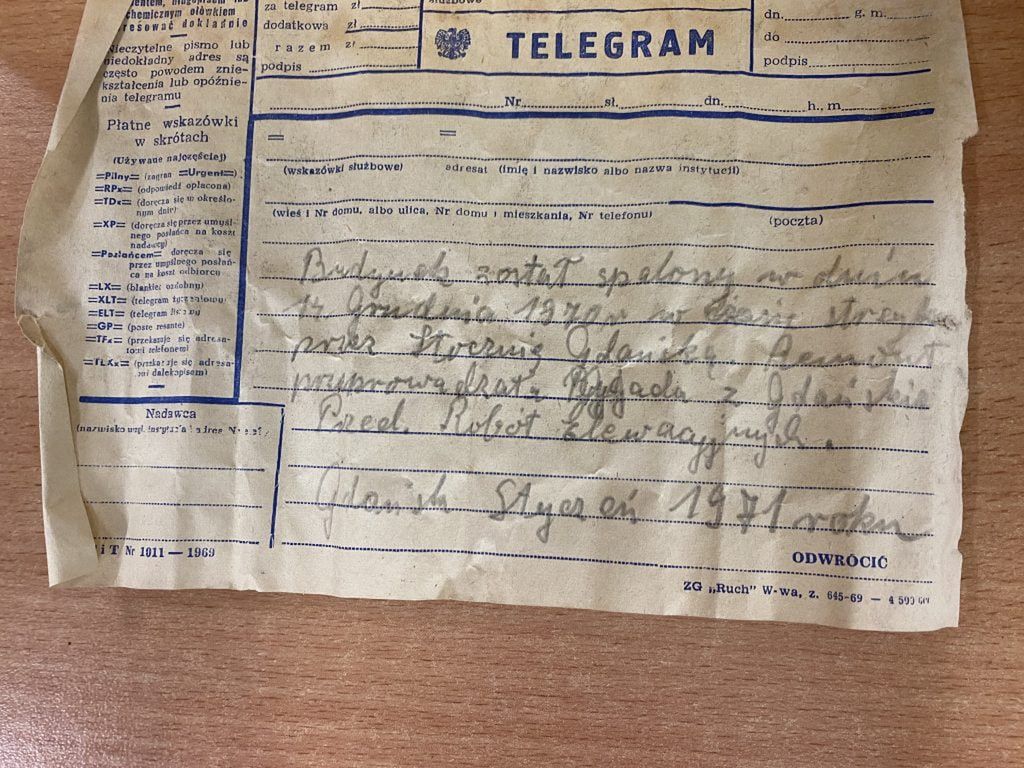 za telegram zł
dodatkowa zł
razem zł
podpis
służbowe
TELEGRAM
dn. g. m.
do
podpis
chemicznym ołówkiem
resować dokładnie
Nieczytelne pismo lub
niedokładny adres są
często powodem znie-
kształcenia lub opóźnie-
nia telegramu
Płatne wskazówki
w skrótach
(Używane najczęściej)
=Pilny= (zagran =Urgent=)
=RPx= (odpowiedź opłacona)
=TDx= (doręcza się w określo-
nym dniu)
=XP= (doręcza się przez umyśl-
nego posłańca na koszt
nadawcy)
=Posłańcem= doręcza się
przez umyślnego posłań-
ca na koszt odbiorcy
=LX= (blankiet ozdobny)
=XLT= (telegram
=ELT= (telegram
=GP= (poste restante)
=TFx= (przekazuje się adresa-
towi telefonem)
=TLXx= (przekazuje się adresa-
towi dalekopisem)
Nr sł. dn. h., m
= =
(wskazówki służbowe) adresat (imię i nazwisko albo nazwa instytucji)
(wieś i Nr domu, albo ulica, Nr domu i mieszkania, Nr telefonu) (poczta)
Budynek został spalony w dniu
Grudnia 1970r w czasie
przez Stocznię Gdańską. Remont
Brygada z Gdańskiego
Przed. Robót Elewacyjnych.
Gdańsk Styczeń 1971 roku
Nadawca
(nazwisko wzgl. instytucja i adres
Nr 1011 — 1969
ODWRÓCIĆ
ZG „Ruch" W-wa, z. 645-69 — 4 500